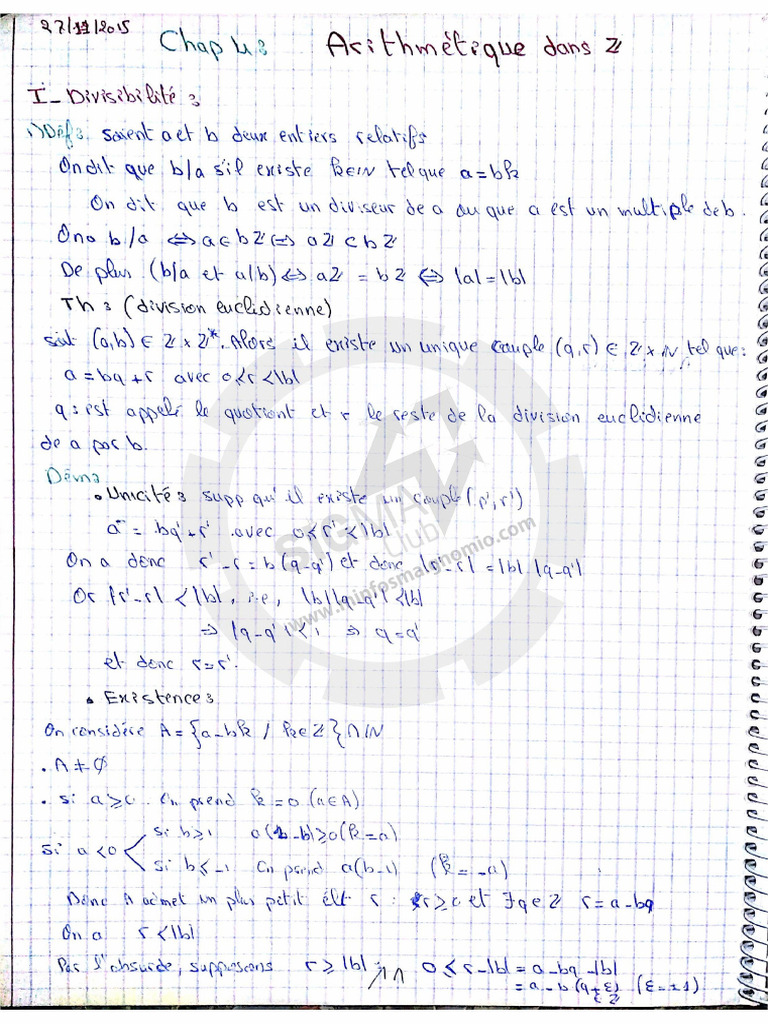 27/11/2015
Chap 4: Arithmétique dans ℤ
I- Divisibilité:
1) Déf: Soient a et b deux entiers relatifs
On dit que b/a s'il existe k∈IN tel que a=bk
On dit que b est un diviseur de a ou que a est un multiple de b.
On a b/a ⇔ a∈bℤ ⇔ aℤ⊂bℤ
De plus (b/a et a/b) ⇔ aℤ = bℤ ⇔ |a|=|b|
Th: (division euclidienne)
soit (a,b)∈ℤ×ℤ*. Alors il existe un unique couple (q,r)∈ℤ×IN tel que:
a=bq+r avec 0≤r<|b|
q: est appelé le quotient et r le reste de la division euclidienne
de a par b.
Démo
• Unicité: supp qu'il existe un couple (p',r')
a = bq'+r' avec 0≤r'<|b|
On a donc r'-r=b(q-q') et donc |r'-r|=|b|.|q-q'|
Or |r'-r|<|b|, i.e, |b||q-q'|<|b|
⇒ |q-q'|<1 ⇒ q=q'
et donc r=r'.
• Existence:
On considére A={a-bk / k∈ℤ}∩IN
. A≠∅
. si a≥0 On prend k=0 (a∈A)
si a<0
si b≥1 a(1-b)≥0 (k=a)
si b≤-1 On prend a(b-1) (k=-a)
Donc A admet un plus petit élt r: r≥0 et ∃q∈ℤ r=a-bq
On a r<|b|
Par l'absurde, supposons r≥|b| 0≤r-|b|=a-bq-|b|
=a-b(q+ε) (ε=±1)
∈ℤ
SIGMA
Club
www.minfosmalgnomio.com